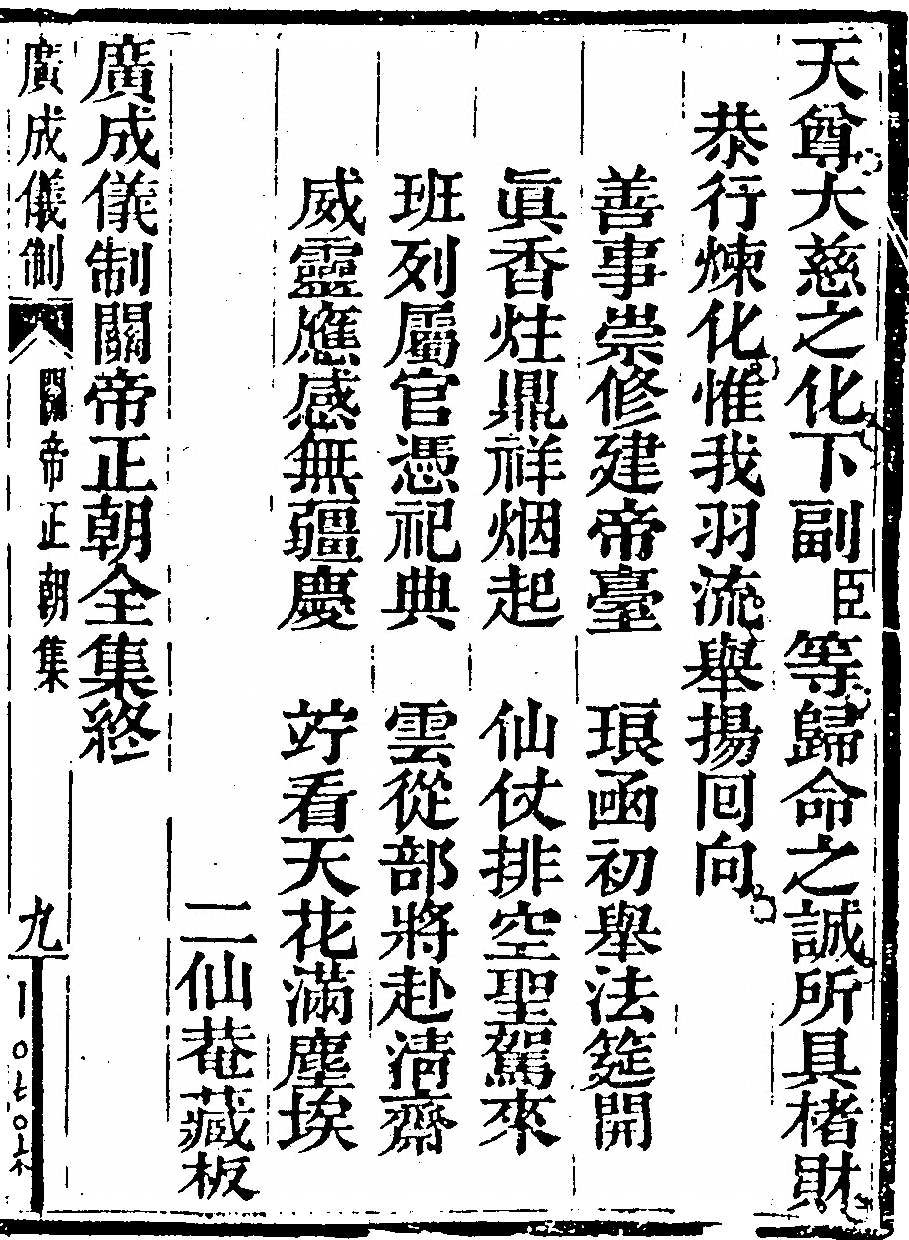 天尊大慈之化下副臣等歸命之誠所具楮財
恭行煉化惟我羽流舉揚回向
善事崇修建帝臺　琅函初舉法筵開
眞香炷鼎祥烟起　仙仗排空聖駕來
班列屬官憑祀典　雲從部將赴淸齋
威靈應感無疆慶　竚看天花滿塵埃
二仙菴藏板
廣成儀制關帝正朝全集終
廣成儀制　關帝正朝集　九